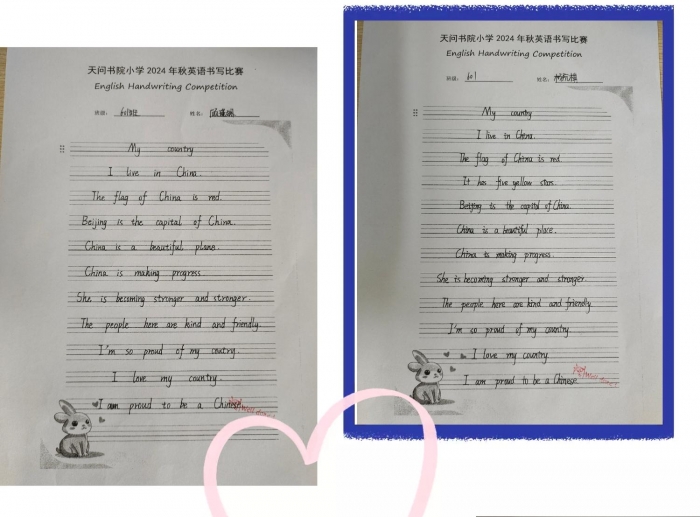 天问书院小学 2024 年秋英语书写比赛
English Handwriting Competition
班级: 601班 姓名:
My country
I live in China.
The flag of China is red.
Beijing is the capital of China.
China is a beautiful plane.
China is making progress.
She is becoming stronger and stronger.
The people here are kind and friendly.
I'm so proud of my coutry.
I love my country.
I am proud to be a Chinese.
Well done!
天问书院小学 2024 年秋英语书写比赛
English Handwriting Competition
班级: 601 姓名:
My country
I live in China.
The flag of China is red
It has five yellow stars.
Beijing is the capital of China.
China is a beautiful place.
China is making progress.
She is becoming stronger and stronger.
The people here are kind and friendly
I'm so proud of my country.
I love my country.
I am proud to be a Chinese.
Well done!